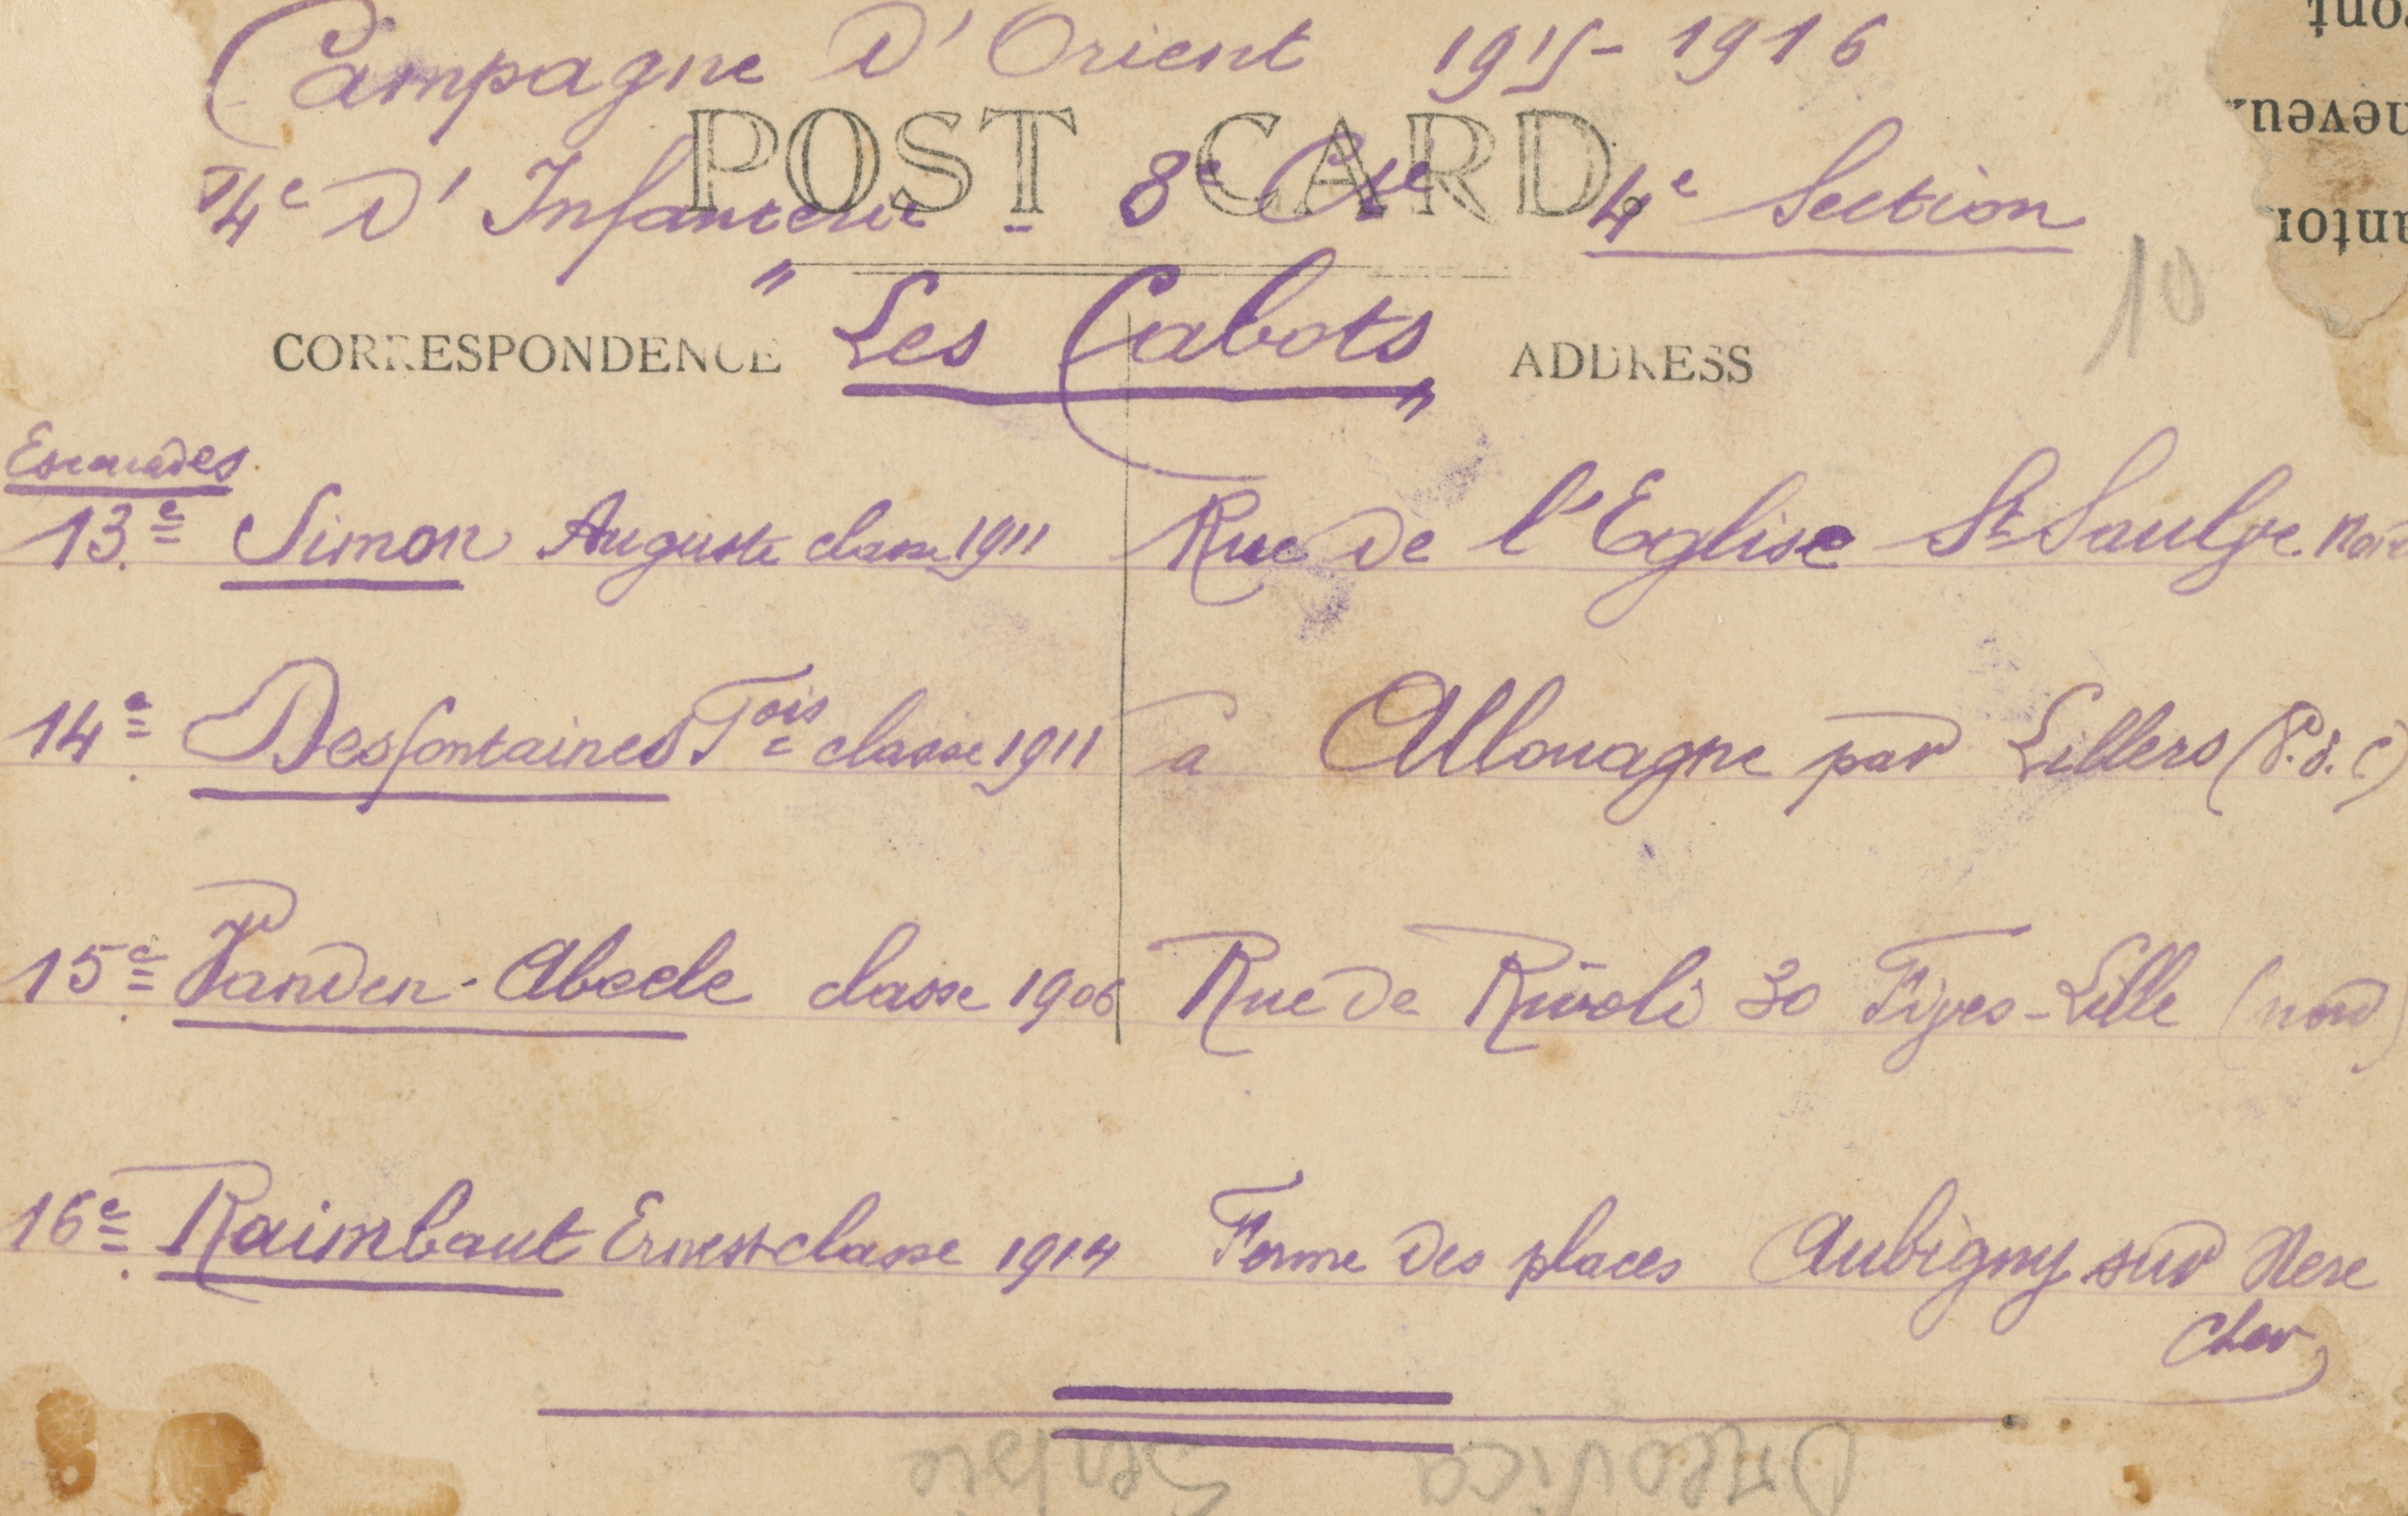 Campagne D'Orient 1915-1916
POST CARD
4e D'Infanterie - 8e Cie 4e Section
" Les Cabots "
CORRESPONDENCE ADDRESS
10
Escouades
13e Simon Auguste classe 1911 Rue de l'Eglise St Saulge.
14e Desfontaines Fois classe 1911 a Allouagne par Lillers (P.d.C)
15e Vanden-Abeele classe 1906 Rue de Rivoli 30 Fives-Lille (nord)
16e Raimbaut Ernest classe 1914 Ferme des places Aubigny sur Nere
Cher
Orlovica Serbie